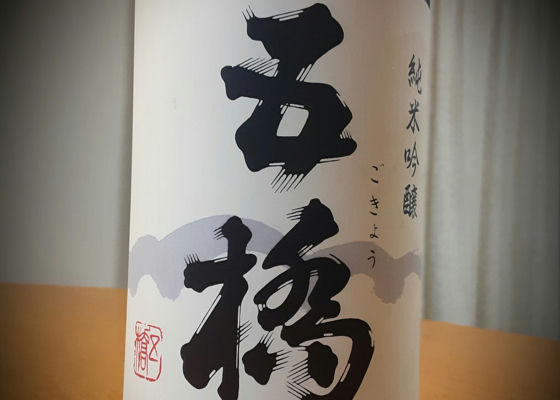 純米吟醸
五橋
ごきょう
五橋